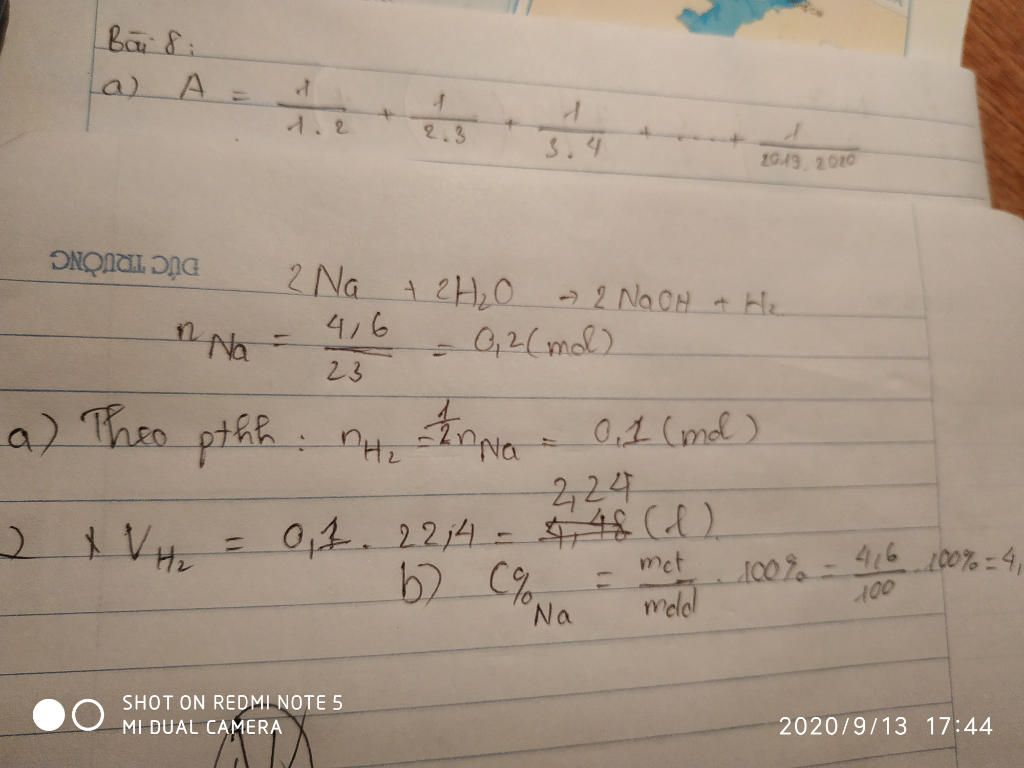 Bài 8:
a) A = 1/1.2 + 1/2.3 + 1/3.4 + ..... + 1/2019.2020
ĐỨC TRƯỢNG
2Na + 2H₂O → 2NaOH + H₂
n Na = 4,6/23 = 0,2 (mol)
a) Theo pthh: nH₂ = 1/2 nNa = 0,1 (mol)
2,24
x VH₂ = 0,1. 22,4 = 4,48 (l)
b) C% Na = mct/mdd . 100% = 4,6/100 . 100% = 4,
SHOT ON REDMI NOTE 5
MI DUAL CAMERA
2020/9/13 17:44